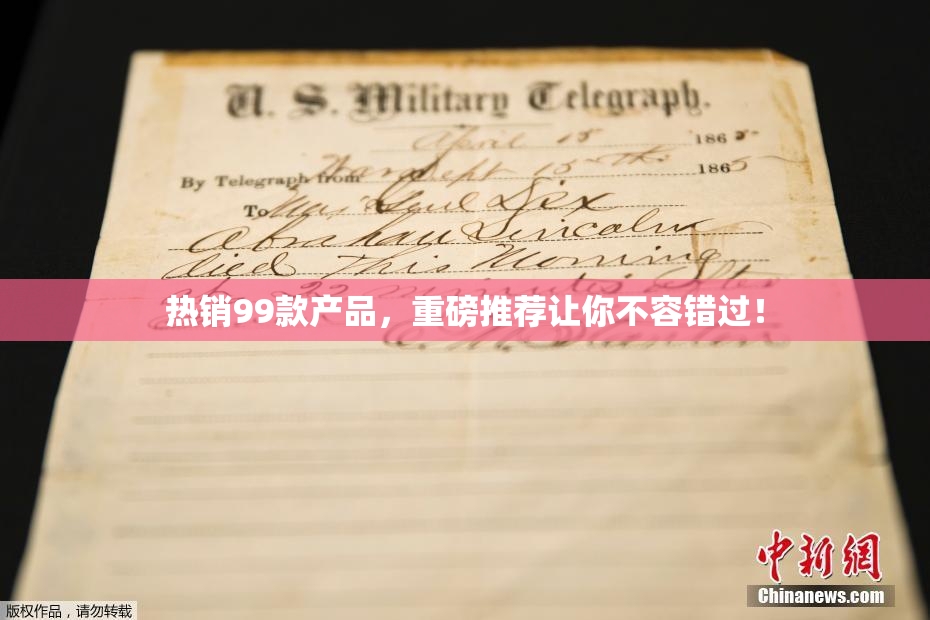 U. S. Military Telegraph.
April 15 1865
By Telegraph from War Dept 15th 1865
To Maj Genl Dix
Abraham Lincoln
died This Morning
at 22 minutes after
热销99款产品，重磅推荐让你不容错过！
E. M. Stanton
中新网
Chinanews.com
版权作品，请勿转载